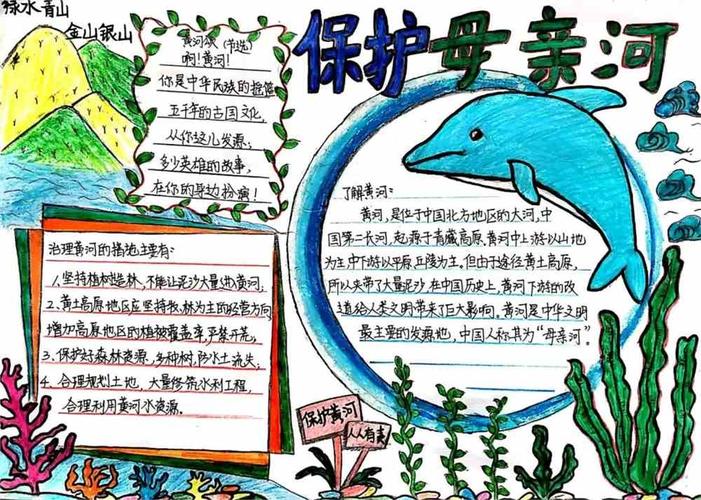 绿水青山
金山银山
保护母亲河
黄河颂(节选)
啊!黄河!
你是中华民族的摇篮
五千年的古国文化,
从你这儿发源;
多少英雄的故事,
在你的身边扮演!
了解黄河:
黄河,是位于中国北方地区的大河,中
国第二长河,起源于青藏高原,黄河中上游以山地
为主,中下游以平原,丘陵为主.但由于途径黄土高原,
所以夹带了大量泥沙,在中国历史上,黄河下游的改
道给人类文明带来了巨大影响。黄河是中华文明
最主要的发源地,中国人称其为“母亲河”。
治理黄河的措施主要有:
1.坚持植树造林,不能让泥沙大量进入黄河;
2、黄土高原地区应坚持牧,林为主的经营方向
增加高原地区的植被覆盖率,严禁开荒;
3.保护好森林资源,多种树,防水土流失;
4.合理规划土地,大量修筑水利工程,
合理利用黄河水资源。
保护黄河
人人有责